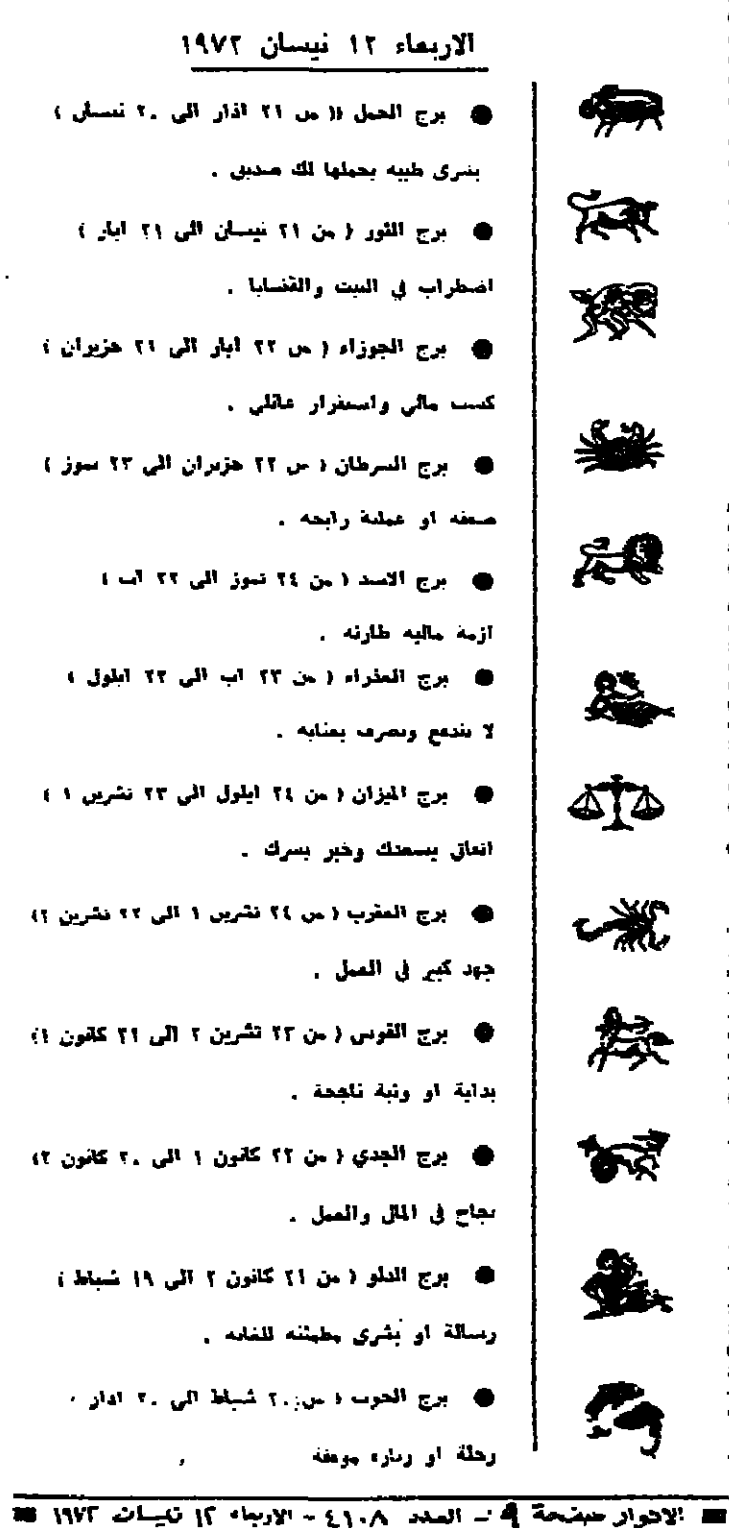 الاربعاء ١٢ نيسان ١٩٧٢
● برج الحمل (( من ٢١ اذار الى ٢٠ نيسان )
بشرى طيبه يحملها لك صديق .
● برج الثور ( من ٢١ نيسان الى ٢١ ايار )
اضطراب في البيت والقضايا .
● برج الجوزاء ( من ٢٢ ايار الى ٢١ حزيران )
كسب مالي واستقرار عائلي .
● برج السرطان ( من ٢٢ حزيران الى ٢٣ تموز )
صفقه او عملية رابحه .
● برج الاسد ( من ٢٤ تموز الى ٢٢ اب )
ازمة ماليه طارئه .
● برج العذراء ( من ٢٣ اب الى ٢٣ ايلول )
لا تندفع وتصرف بعنايه .
● برج الميزان ( من ٢٤ ايلول الى ٢٣ تشرين ١ )
اتفاق يسعدك وخبر يسرك .
● برج العقرب ( من ٢٤ تشرين ١ الى ٢٢ تشرين ٢)
جهد كبير في العمل .
● برج القوس ( من ٢٣ تشرين ٢ الى ٢١ كانون ١)
بداية او وثبة ناجحة .
● برج الجدي ( من ٢٢ كانون ١ الى ٢٠ كانون ٢)
نجاح في المال والعمل .
● برج الدلو ( من ٢١ كانون ٢ الى ١٩ شباط )
رسالة او بشرى مطمئنه للغايه .
● برج الحوت ( من ٢٠ شباط الى ٢٠ اذار
رحلة او زياره موفقة
الانوار صفحة ٩ - العدد ٤١٠٨ - الاربعاء ١٢ نيسان ١٩٧٢